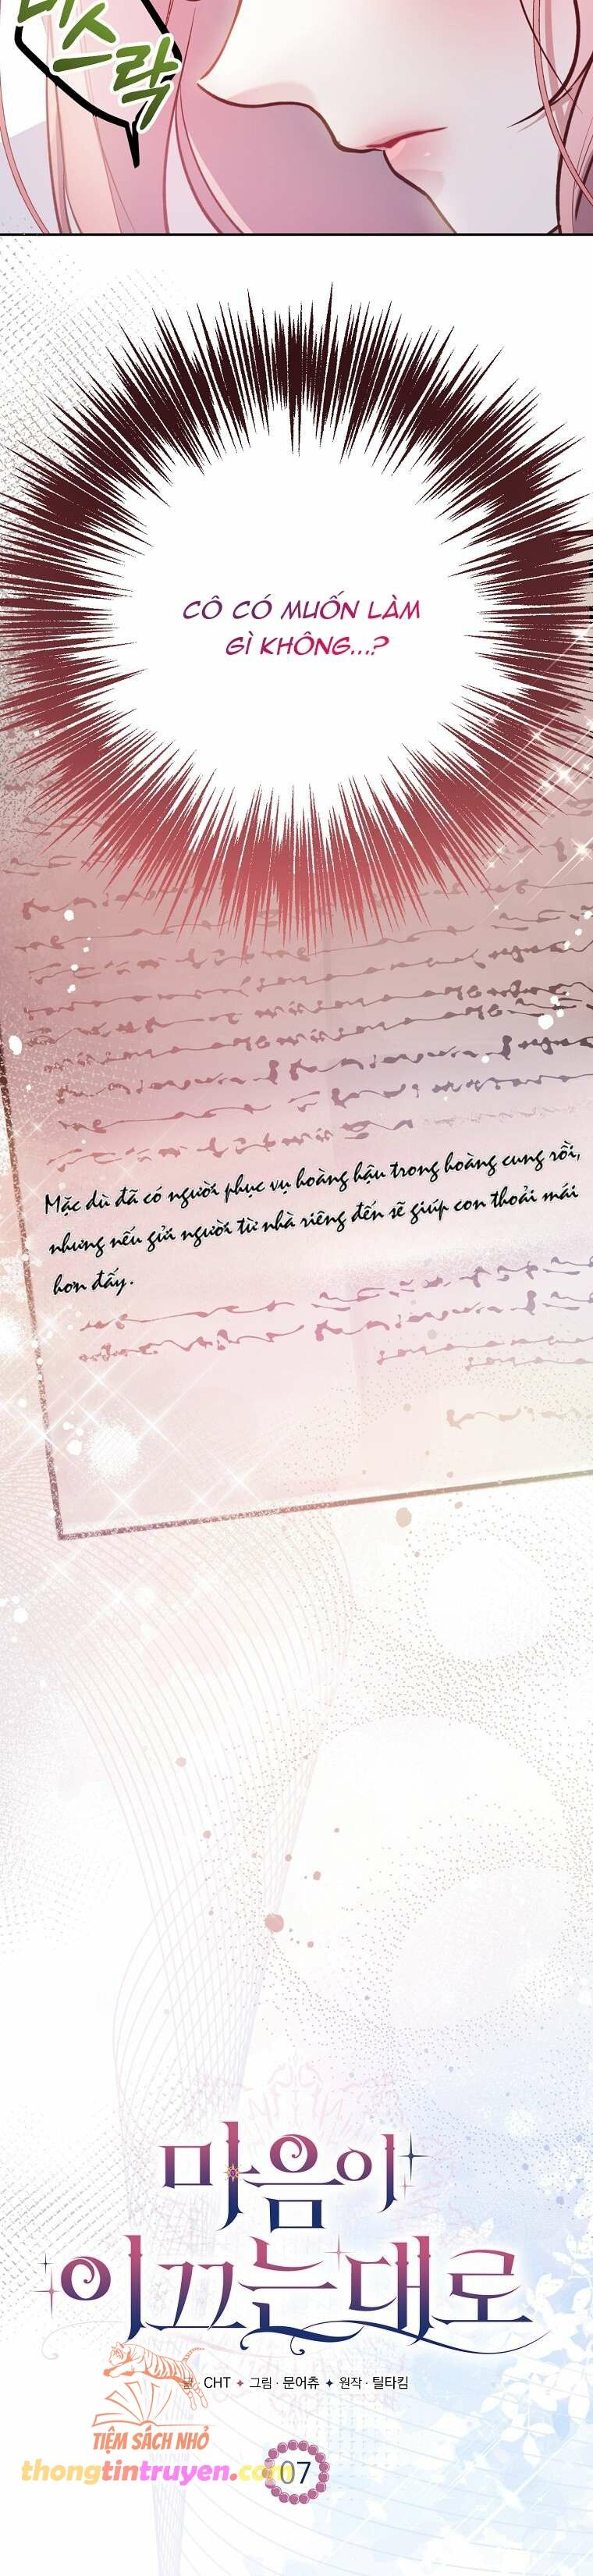 바스락
CÔ CÓ MUỐN LÀM
GÌ KHÔNG...?
Mặc dù đã có người phục vụ hoàng hậu trong hoàng cung rồi,
nhưng nếu gửi người từ nhà riêng đến sẽ giúp con thoải mái
hơn đấy.
마음이
이끄는 대로
글· CHT ✦ 그림· 문어츄 ✦ 원작· 틸타킴
TIỆM SÁCH NHỎ
thongtintruyen.com
07